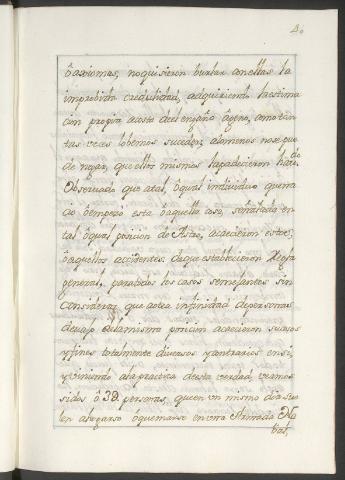 4.
ô axiomas, no quisieron burlar con ellas la
improbida credulidad, adquiriendo la estima
cion propia acosta del engaño ageno, como tan
tas veces lo bemos suceder, alomenos no se pue
de negar, que ellos mismos la padecieron
Observando que atal, ô qual individuo que na
cio ô empezo esta ô aquella cosa, señalada en
tal ô qual posicion de Astro, acaecieron estos,
ô aquellos accidentes. de que establecieron Regla
general, para todos los casos semejantes sin
considerar, que a otra infinidad de personas
devajo de la misma posicion acaecieron sucesos
y fines totalmente diversos y contrarios en si,
y viniendo ala practica desta verdad, veamos
sidos ô 3@. personas, que en un mismo dia sue
len ahogarse ô quemarse en una Armada Na
bal,